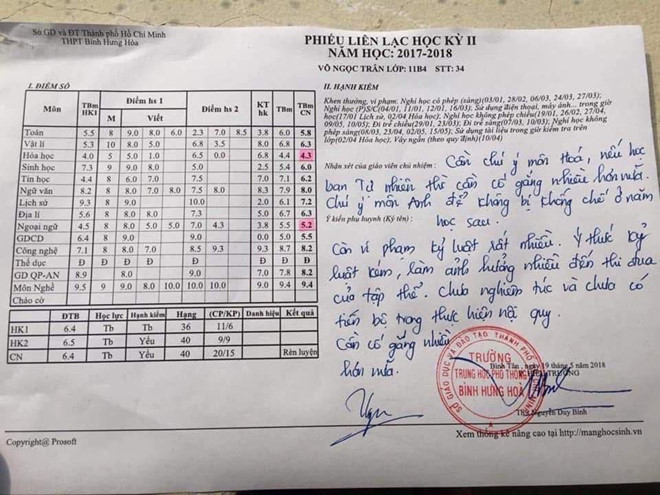 Sở GD và ĐT Thành phố Hồ Chí Minh
THPT Bình Hưng Hòa
PHIẾU LIÊN LẠC HỌC KỲ II
NĂM HỌC: 2017-2018
VÕ NGỌC TRÂN LỚP: 11B4 STT: 34
I. ĐIỂM SỐ
Môn TBm HK1 Điểm hs 1 M Viết Điểm hs 2 KT hk TBm TBm CN
Toán 5.5 8 9.0 8.0 6.0 2.3 7.0 8.5 3.8 6.0 5.8
Vật lí 5.3 10 8.0 5.0 6.8 3.5 8.0 6.8 6.3
Hóa học 4.0 5 5.0 1.0 6.5 0.0 6.8 4.4 4.3
Sinh học 7.3 9 9.0 8.0 5.0 2.5 5.4 6.0
Tin học 4.4 8 6.0 7.5 7.0 7.1 6.2
Ngữ văn 8.2 8 8.0 7.0 8.0 7.5 8.0 8.3 7.9 8.0
Lịch sử 9.3 8 9.0 10.0 2.0 6.1 7.2
Địa lí 5.6 8 8.0 8.0 7.3 5.0 6.7 6.3
Ngoại ngữ 4.5 8 8.0 5.0 5.0 7.0 4.3 3.8 5.5 5.2
GDCD 6.4 8 9.0 9.0 0.0 5.0 5.5
Công nghệ 7.1 8 8.0 7.0 8.5 9.3 9.3 8.7 8.2
Thể dục Đ Đ Đ Đ Đ Đ Đ
GD QP-AN 8.9 8.0 9.0 7.0 7.8 8.2
Môn Nghề 9.5 9 9.0 8.0 10.0 10.0 10.0 9.0 9.4 9.4
Chào cờ
ĐTB Học lực Hạnh kiểm Hạng (CP/KP) Danh hiệu Kết quả
HK1 6.4 Tb Tb 36 11/6
HK2 6.5 Tb Yếu 40 9/9
CN 6.4 Tb Yếu 40 20/15 Rèn luyện
II. HẠNH KIỂM
Khen thưởng, vi phạm: Nghỉ học có phép (sáng)(03/01, 28/02, 06/03, 24/03, 27/03);
Nghỉ học (P)S/C(04/01, 11/01, 12/01, 16/03); Sử dụng điện thoại, máy ảnh... trong giờ
học(17/01 Lịch sử, 02/04 Hóa học); Nghỉ học không phép chiều(19/01, 26/01, 22/02,
09/05, 10/05); Đi trễ chiều(19/01, 23/03); Đi trễ sáng(07/03, 10/03); Nghỉ học không
phép sáng(08/03, 23/04, 02/05, 15/05); Sử dụng tài liệu trong giờ kiểm tra trên
lớp(02/04 Hóa học); Vây ngắn (theo quy định)(10/04)
Nhận xét của giáo viên chủ nhiệm: Cần chú ý môn Hoá, nếu học
ban Tự nhiên thì cần cố gắng nhiều hơn nữa.
Chú ý môn Anh để không bị khống chế ở năm
Ý kiến phụ huynh (Ký tên):
học sau.
Còn vi phạm kỷ luật rất nhiều. Ý thức kỷ
luật kém, làm ảnh hưởng nhiều đến thi đua
của tập thể. Chưa nghiêm túc và chưa có
tiến bộ trong thực hiện nội quy.
Cần cố gắng nhiều
hơn nữa.
Bình Tân, ngày 19 tháng 5 năm 2018
HIỆU TRƯỞNG
SỞ GIÁO DỤC VÀ ĐÀO TẠO THÀNH PHỐ
TRƯỜNG
TRUNG HỌC PHỔ THÔNG
BÌNH HƯNG HOÀ
Nguyễn Duy Bình
Copyright@ Prosoft
Xem thống kê nâng cao tại http://manghocsinh.vn